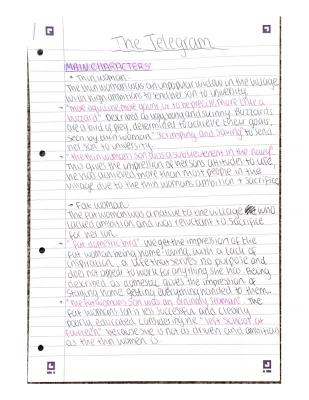 The Telegram
MAIN CHARACTERS:
• Thin woman:
The thin woman was an unpopular widow in the village
with high ambitions to enable son to university.
• "more aquiline, more gaunt or to be precise, more like a
buzzard" Described as very wary and cunning. Buzzards
are a bird of prey, determined to achieve their goals,
seen by thin woman "scrimping and saving" to send
her son to university.
• "the thin woman's son was a sub-lieutenant in the navy"
This gives the impression of her son's attitude to life
he has achieved more than most people in the
village due to the thin woman's ambition + sacrifice
• Fat woman:
The fat woman was a native to the village who
lacked ambition and was reluctant to sacrifice
for her son.
• "fat domestic bird" we get the impression of the
fat woman being home-loving, with a lack of
inspiration, a life that serves no purpose and
does not appear to work for anything she has. Being
described as domestic gives the impression of
staying home getting everything handed to them.
• "the fat woman's son was an ordinary seaman". The
fat woman's son is less successful and clearly
poorly educated considering he "left school at
fourteen" because she is not as driven and ambitious
as the thin woman is.